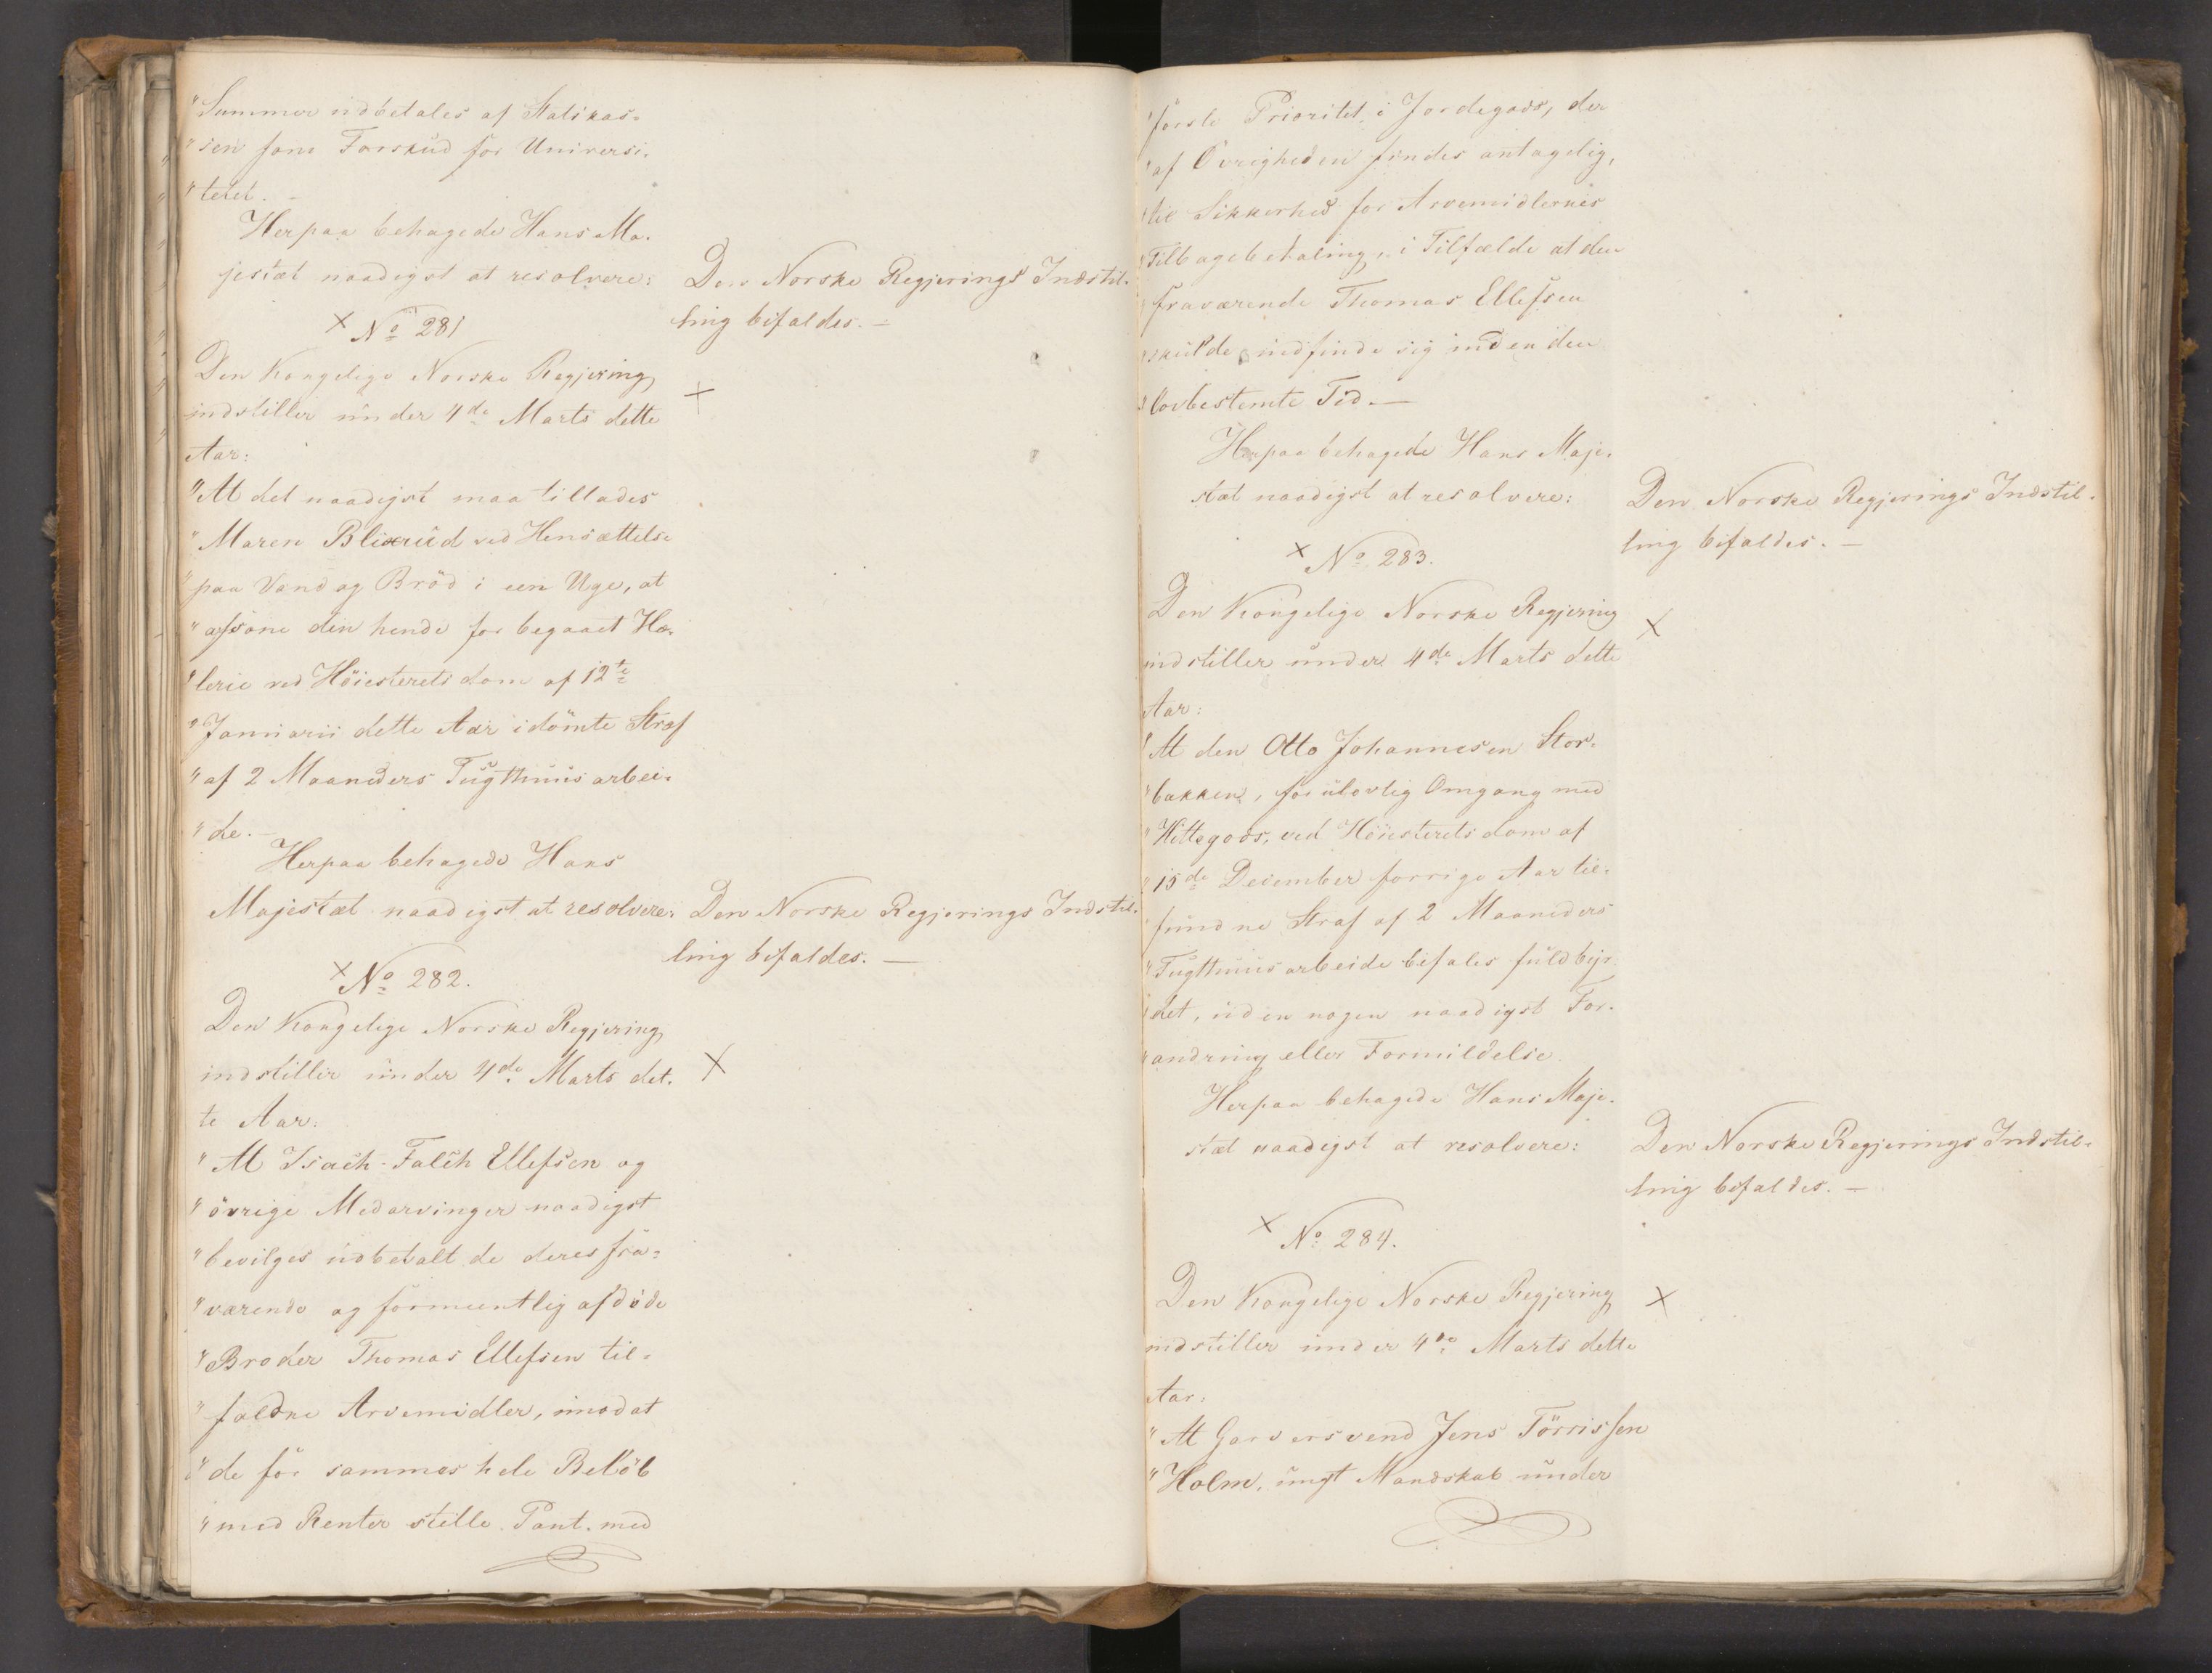 "Summer udbetales af Statskas-
"sen som Forskud for Universi-
"tetet. -
Herpaa behagede Hans Ma-
jestæt naadigst at resolvere:
Den Norske Regjerings Indstil-
ling bifaldes. -
× No 281
Den Kongelige Norske Regjering
indstiller under 4de Marts dette
Aar:
×
"At det naadigst maa tillades
"Maren Blixrud ved Hensættelse
"paa Vand og Bröd i een Uge, at
"afsone den hende for begaaet Hæ-
"lerie ved Höiesterets dom af 12te
"Januarii dette Aar idömte Straf
"af 2 Maaneders Tugthuusarbei-
"de. -
Herpaa behagede Hans
Majestæt naadigst at resolvere:
Den Norske Regjerings Indstil-
ling bifaldes. -
× No 282.
Den Kongelige Norske Regjering
indstiller under 4de Marts det-
te Aar:
×
"At Isach Falch Ellefsen og
"övrige Medarvinger naadigst
"bevilges udbetalt de deres fra-
"værende og formeentlig afdöde
"Broder Thomas Ellefsen til-
"faldne Arvemidler, imod at
"de for sammes hele Belöb
"med Renter stille Pant med
"förste Prioritet i Jordegods, der
"af Övrigheden findes antagelig,
"til Sikkerhed for Arvemidlernes
"Tilbagebetaling, i Tilfælde at den
"fraværende Thomas Ellefsen
"skulde indfinde sig inden den
"lovbestemte Tid. -
Herpaa behagede Hans Maje-
stæt naadigst at resolvere:
Den Norske Regjerings Indstil-
ling bifaldes. -
× No 283.
Den Kongelige Norske Regjering
indstiller under 4de Marts dette
Aar:
×
"At den Otto Johannesen Stor-
"bakken, for ulovlig Omgang med
"Hittegods, ved Höiesterets dom af
"15de December forrige Aar til-
"fundne Straf af 2 Maaneders
"Tugthuusarbeide befales fuldbyr-
"det, uden nogen naadigst For-
"andring eller Formildelse.
Herpaa behagede Hans Maje-
stæt naadigst at resolvere:
Den Norske Regjerings Indstil-
ling bifaldes. -
× No 284.
Den Kongelige Norske Regjering
indstiller under 4de Marts dette
Aar:
×
"At Garversvend Jens Törrissen
"Holm, ungt Mandskab under